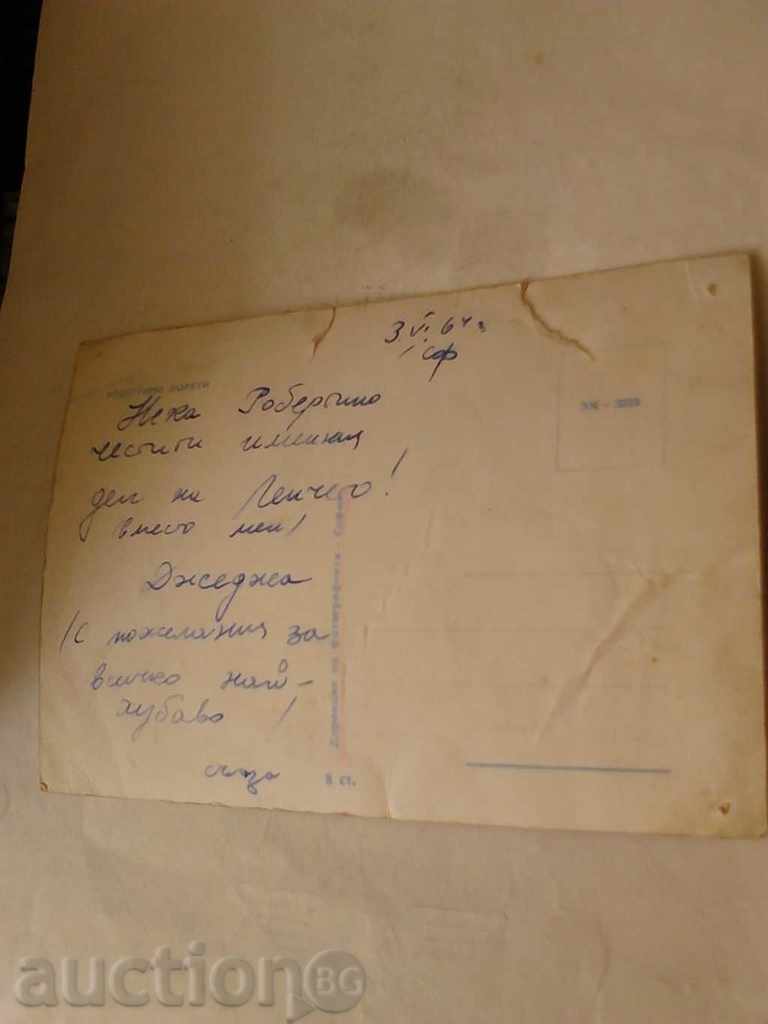 3 VI. 64 г.
/ Сф
РОБЕРТИНО ЛОРЕТИ
Нека Робертино
честити имения
ден на Ленчето!
вместо мен!
Джеджа
/С пожелания за
всичко най-
хубаво /
8 ст.
auctionBG